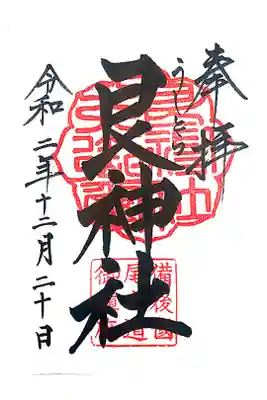 奉拝
うしとら
艮神社
備後國
尾道
令和二年十二月二十日